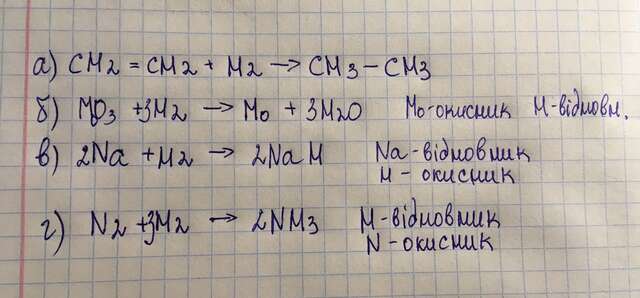 а) CH2 = CH2 + H2 → CH3 – CH3
б) MO3 + 3H2 → Mo + 3H2O Mo-окисник H-відновн.
в) 2Na + H2 → 2NaH Na-відновник
H - окисник
г) N2 + 3H2 → 2NH3 H-відновник
N-окисник